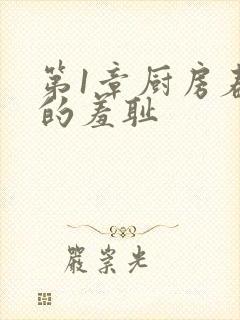 第1章厨房裙
的羞耻
严崇光